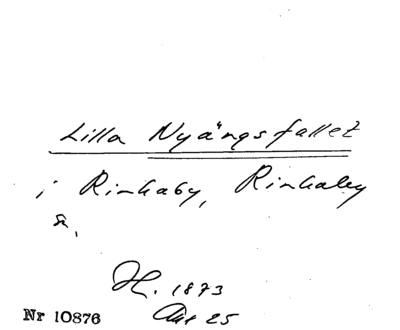 Lilla Nyängsfallet
i Rinkaby, Rinkaby
s,
H. 1873
Aug 25
Nr 10876